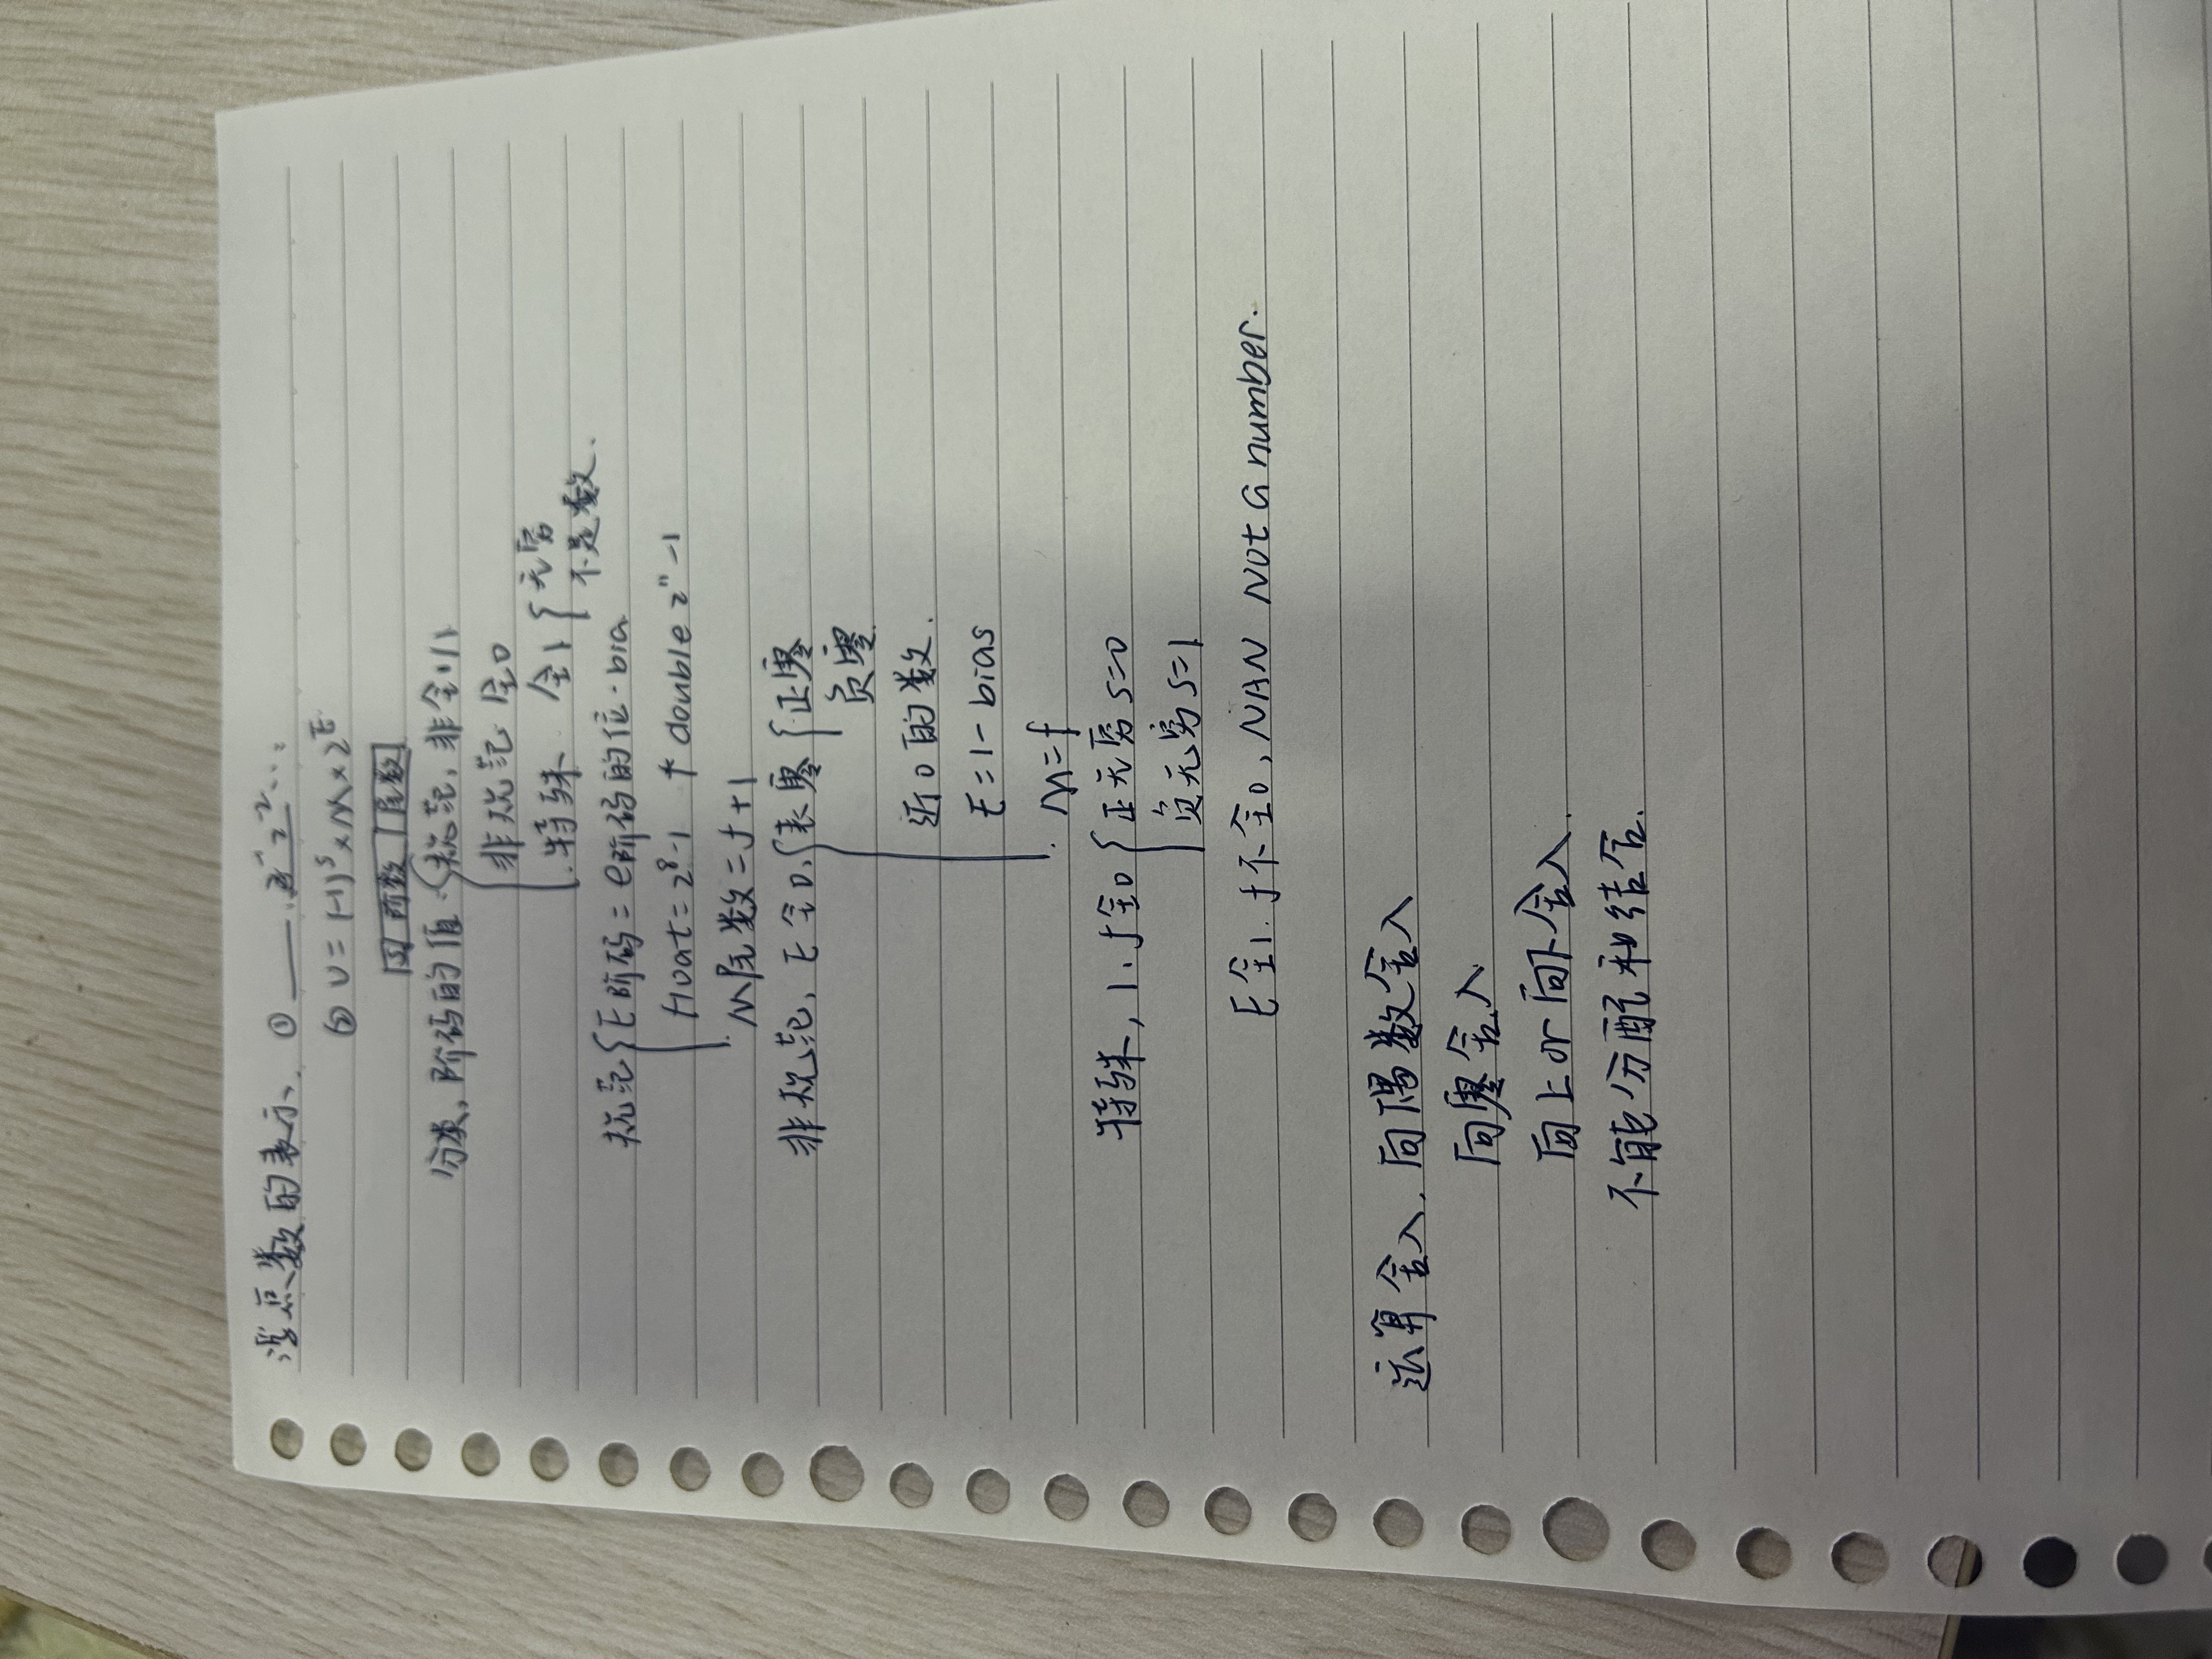 浮点数的表示. ① ——. 2⁻¹ 2⁻² ...
② V = (-1)ˢ × M × 2ᴱ
S 阶数 尾数
分类, 阶码的值 { 规范, 非全0/1
非规范 全0
特殊 全1 { 无穷
不是数.
规范 { E阶码 = e阶码的位 - bia
float = 2⁸-1 double 2¹¹-1
M尾数 = f+1
非规范, E全0, { 表零 { 正零
负零
近0的数.
E = 1 - bias
M = f
特殊, 1. f全0 { 正无穷 S=0
负无穷 S=1
E全1. f不全0, NAN Not a number.
运算舍入. 向偶数舍入
向零舍入
向上or向下舍入.
不能分配和结合.